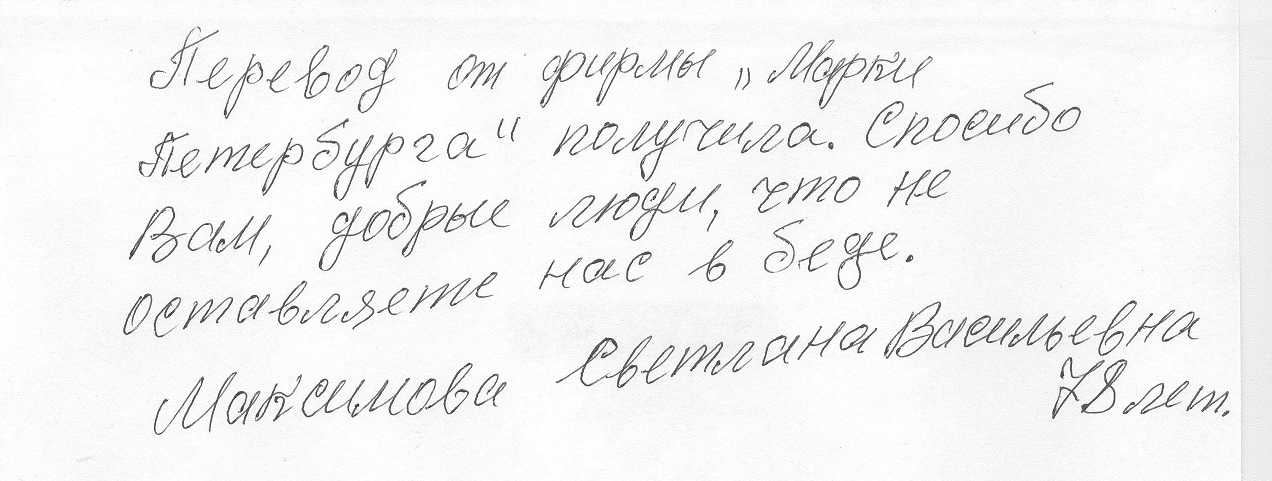 Перевод от фирмы „Марки
Петербурга“ получила. Спасибо
Вам, добрые люди, что не
оставляете нас в беде.
Максимова Светлана Васильевна
78 лет.